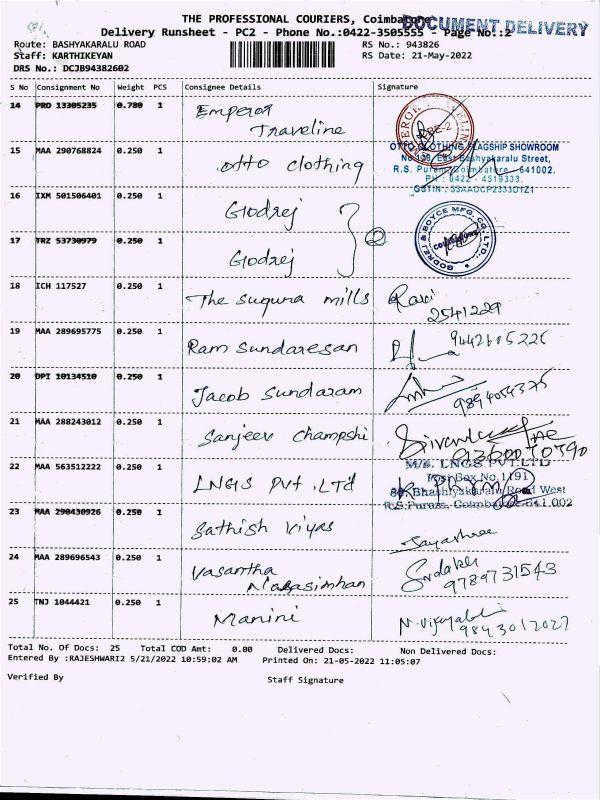 THE PROFESSIONAL COURIERS, Coimbatore
DOCUMENT DELIVERY
Delivery Runsheet - PC2 - Phone No.:0422-3505555 - Page No.:2
Route: BASHYAKARALU ROAD
RS No.: 943826
Staff: KARTHIKEYAN
RS Date: 21-May-2022
DRS No.: DCJB94382602
S No Consignment No Weight PCS Consignee Details Signature
14 PRO 13305235 0.780 1 Emperor Traveline
15 MAA 290768824 0.250 1 Otto clothing
OTTO CLOTHING FLAGSHIP SHOWROOM
No 138, East Bashyakaralu Street,
R.S. Puram, Coimbatore - 641002.
PH : 0422 - 4519333.
GSTIN : 33AAOCP2333D1Z1
16 IXM 501506401 0.250 1 Godrej
GODREJ & BOYCE MFG. CO. LTD.,
COIMBATORE
17 TRZ 53730979 0.250 1 Godrej
2
18 ICH 117527 0.250 1 The Suguna mills Ravi
2541229
19 MAA 289695775 0.250 1 Ram Sundaresan 9442605226
20 DPI 10134510 0.250 1 Jacob Sundaram 9894054375
21 MAA 288243012 0.250 1 Sanjeev Champshi
9360070790
22 MAA 563512222 0.250 1 LNGS Pvt .Ltd
M/s. LNGS PVT.LTD
Post Box No.1191
Bhashyakaralu Road West
R.S.Puram, Coimbatore-641 002
23 MAA 290430926 0.250 1 Sathish Viyas Jayashree
24 MAA 289696543 0.250 1 Vasantha Narasimhan
9789731543
25 TNJ 1044421 0.250 1 Manini
9843012027
Total No. Of Docs: 25 Total COD Amt: 0.00 Delivered Docs: Non Delivered Docs:
Entered By :RAJESHWARI2 5/21/2022 10:59:02 AM Printed On: 21-05-2022 11:05:07
Verified By Staff Signature